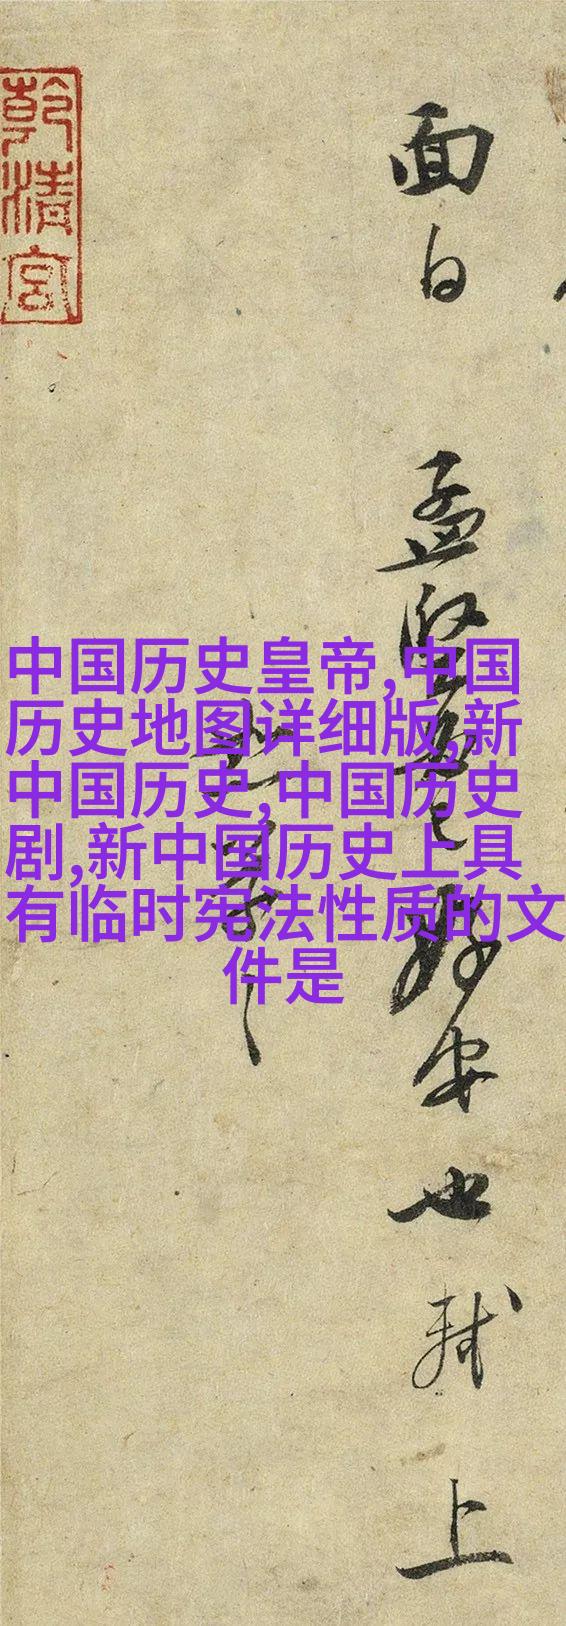 面白 孟堅 好安也 軾 上
乾清宮
中国历史皇帝,中国
历史地图详细版,新
中国历史,中国历史
剧,新中国历史上具
有临时宪法性质的文
件是